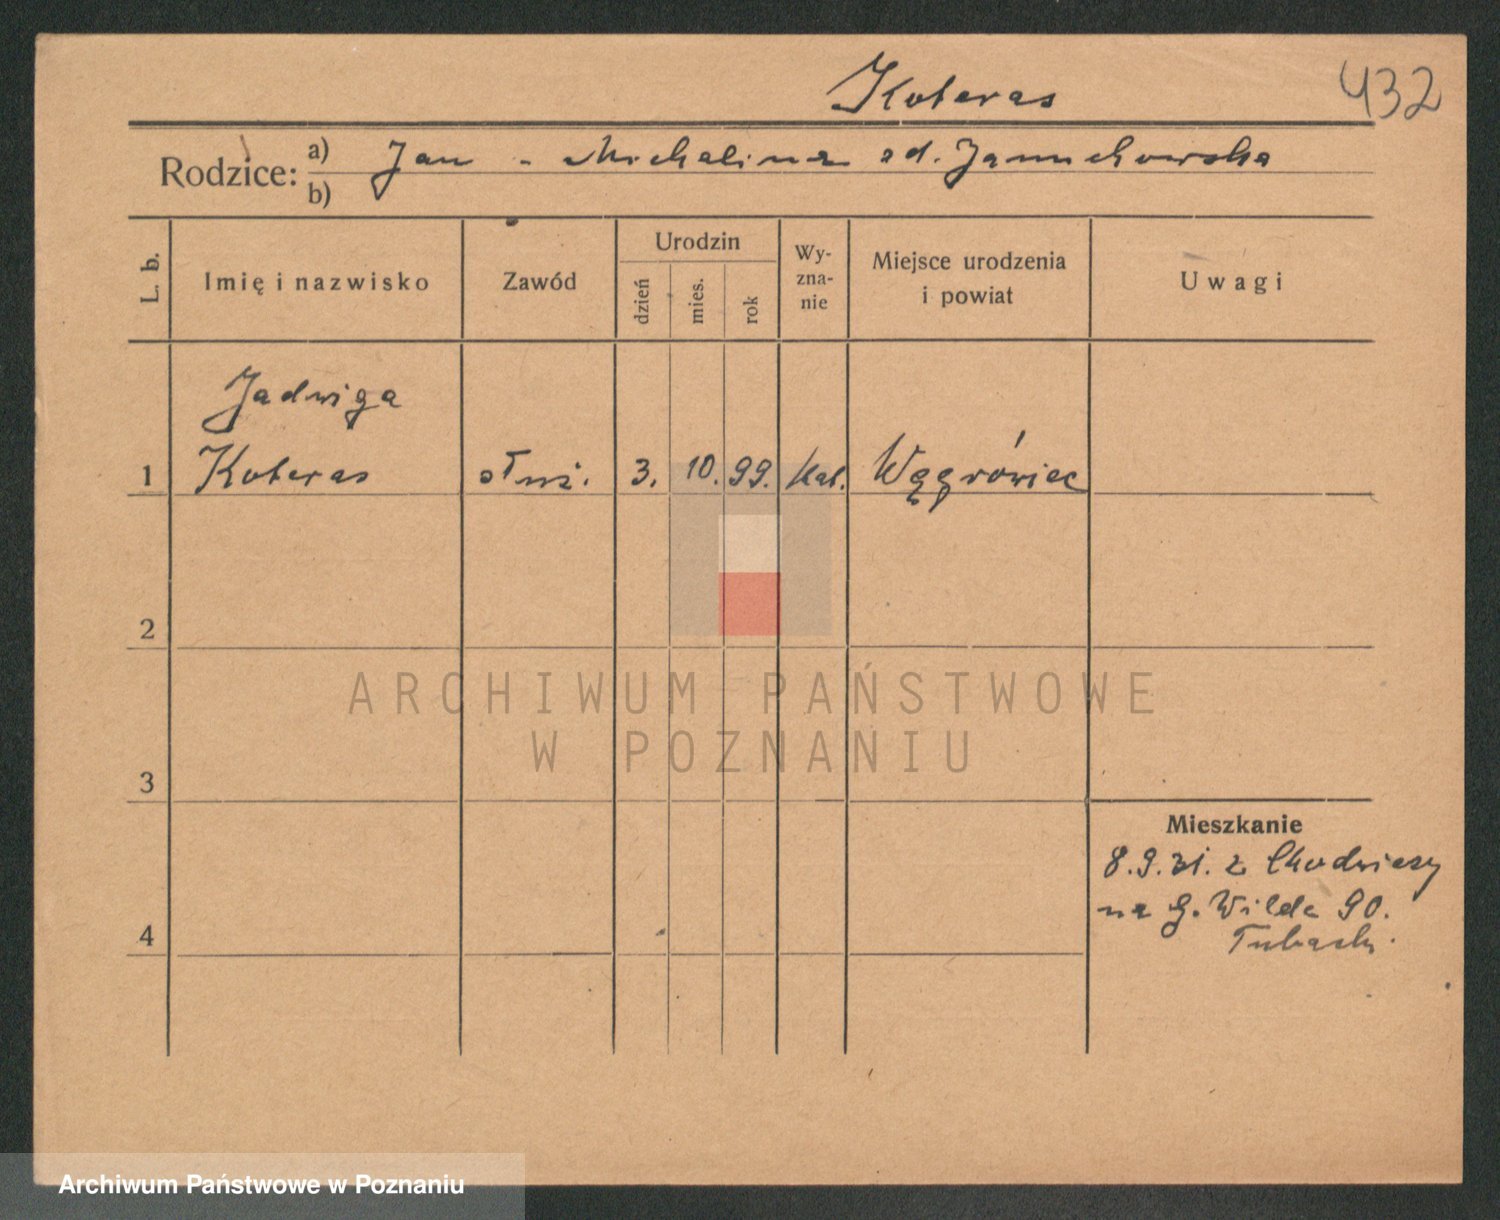 Koteras
432
Rodzice: a) Jan - Michalina
b)
L. b.
Imię i nazwisko
Zawód
Urodzin
dzień
mies.
rok
Wy-
zna-
nie
Miejsce urodzenia
i powiat
Uwagi
Jadwiga
1 Koteras służ. 3. 10. 99. kat. Wągrówiec
2
3
4
Mieszkanie
8.9.31. z Chodzieży
na G. Wilda 90.
ARCHIWUM PAŃSTWOWE
W POZNANIU
Archiwum Państwowe w Poznaniu